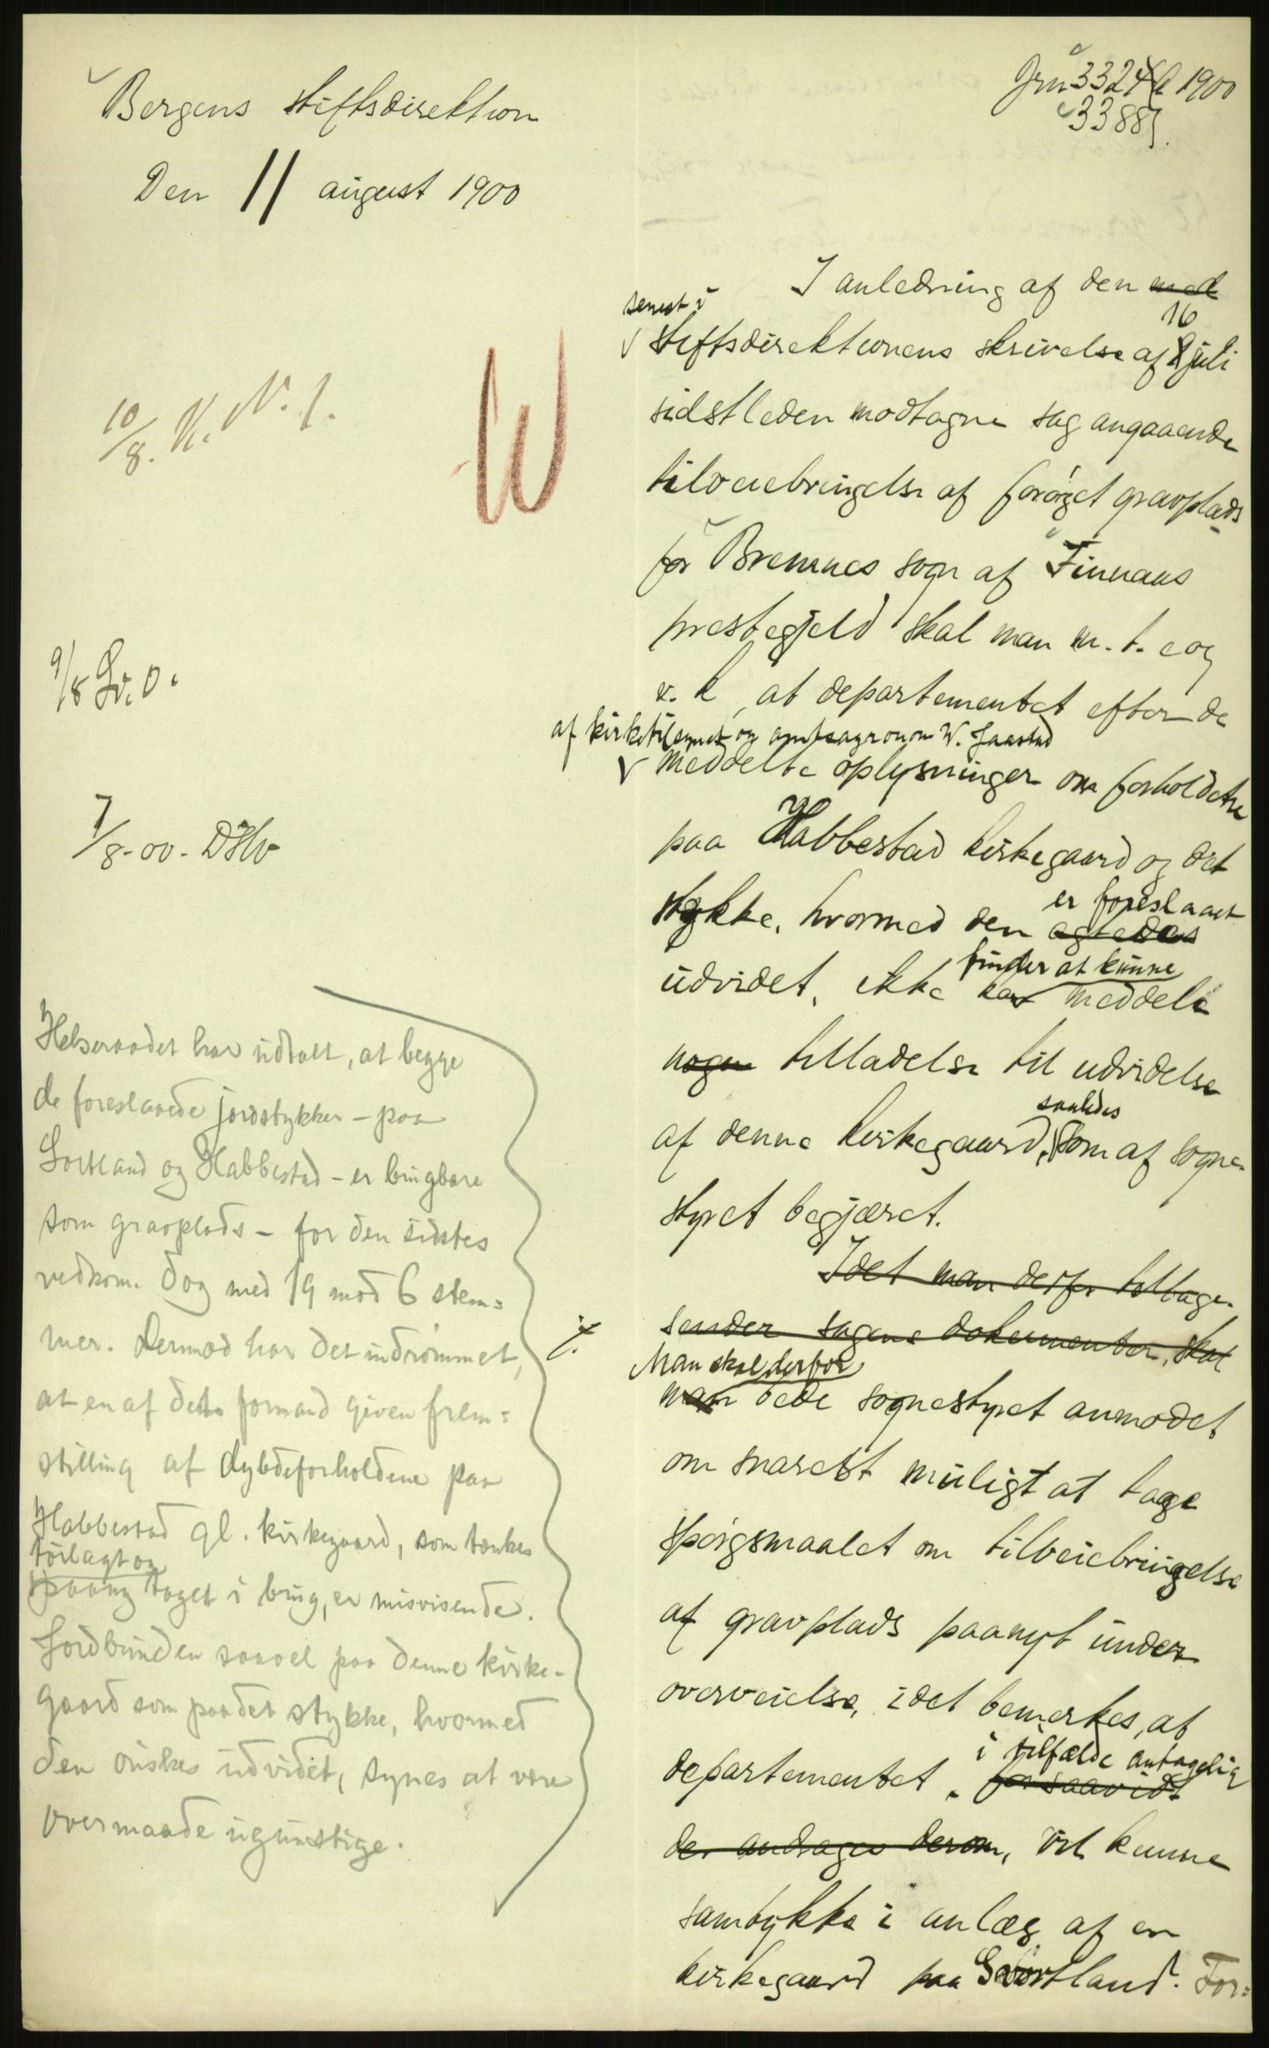 Bergens stiftsdirektion
Den 11 august 1900
Jrn 3324 1900
3388
10/8. K. N. f.
9/8 Sv. O.
7/8-00. DHw
W
I anledning af den med
senest i
stiftsdirektionens skrivelse af 8 juli
16
sidstleden modtagne sag angaaende
tilveiebringelse af forøget gravplads
for Bremnes sogn af Finnaas
prestegjeld skal man m. t. og
v. k, at departementet efter de
af kirketilsynet og amtsagronom W. Jaastad
meddelte oplysninger om forholdene
paa Habbestad kirkegaard og det
stykke, hvormed den agtedes
er foreslaaet
udvidet, ikke kan meddele
finder at kunne
nogen tilladelse til udvidelse
af denne kirkegaard, som af sogne-
saaledes
styret begjæret.
Idet man derfor tilbage-
sender sagens dokumenter, skal
Man skal derfor
man bede sognestyret anmodet
om snarest muligt at tage
spørgsmaalet om tilveiebringelse
af gravplads paanyt under
overveielse, idet bemerkes, at
departementet, forsaavidt
i tilfælde antagelig
der andrages derom, vil kunne
samtykke i anlæg af en
kirkegaard paa Svortland. For=
Helseraadet har udtalt, at begge
de foreslaaede jordstykker – paa
Sortland og Habbestad – er brugbare
som gravplads – for den sidstes
vedkom. dog med 19 mod 6 stem=
mer. Dermod har det indrømmet,
at en af dets formand given frem=
stilling af dybdeforholdene paa
Habbestad gl. kirkegaard, som tænkes
paany taget i brug, er misvisende.
Jordbunden saavel paa denne kirke-
gaard som paa det stykke, hvormed
den ønskes udvidet, synes at være
overmaade ugunstige.